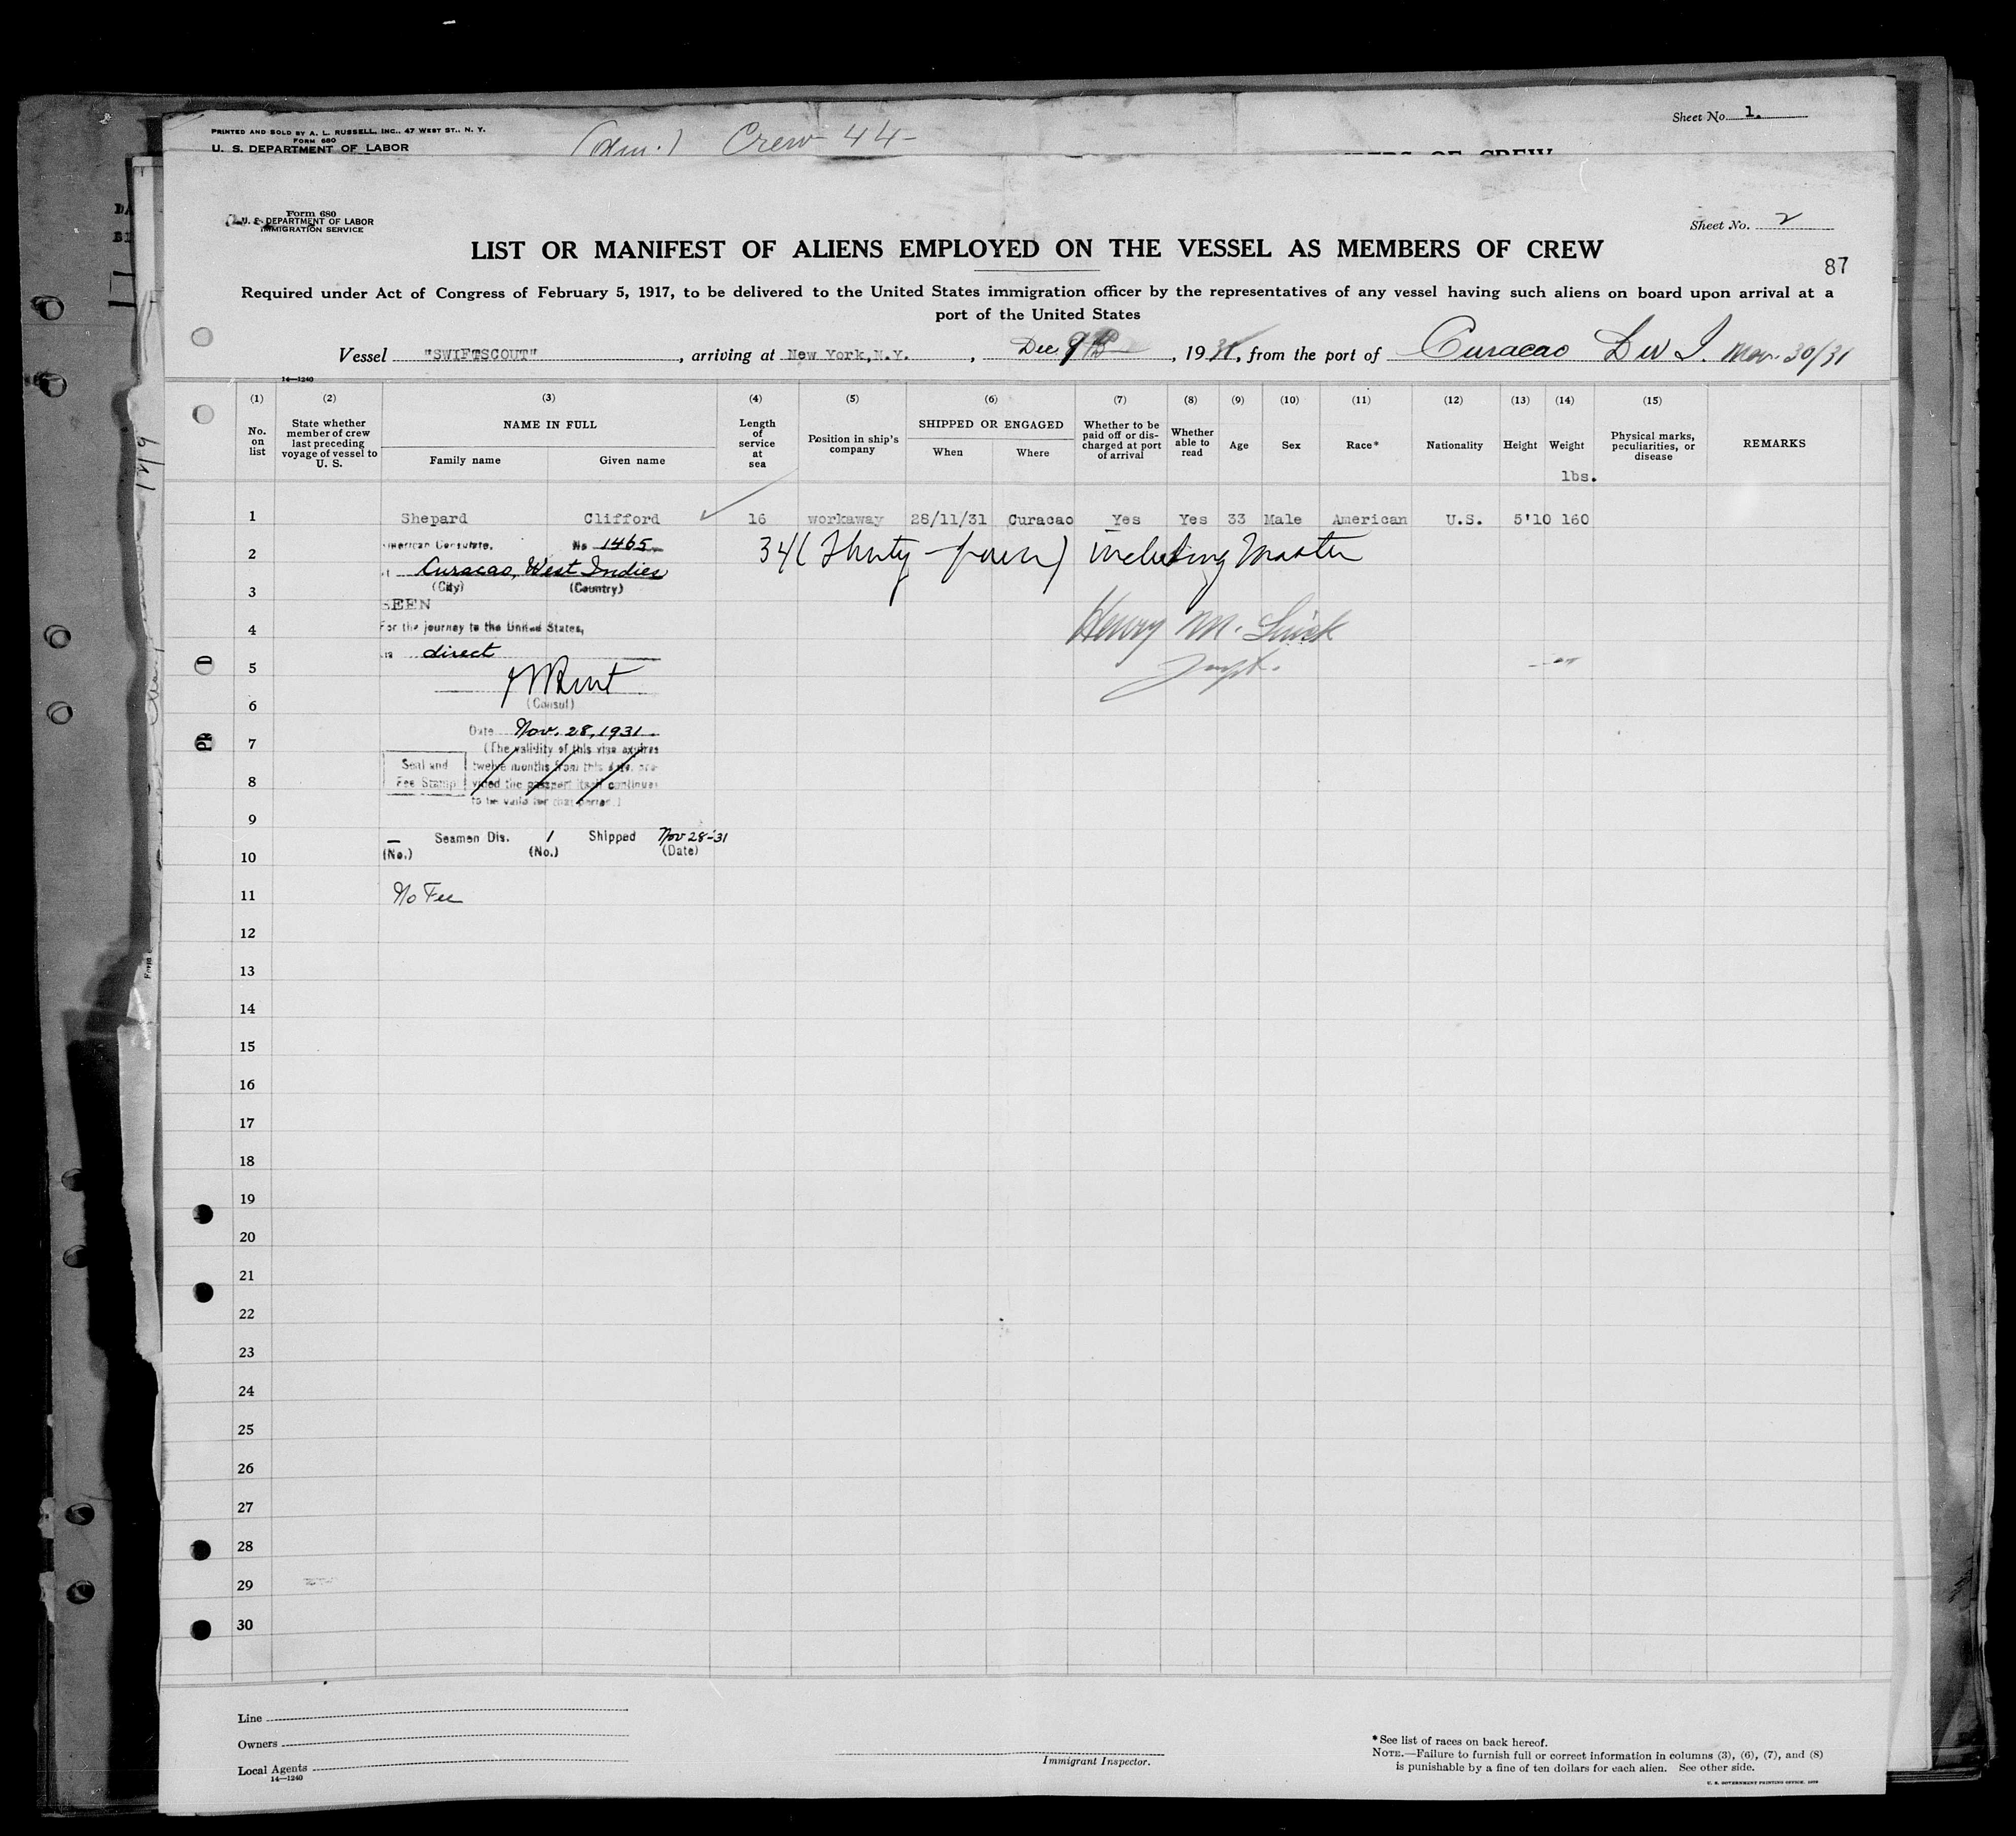 PRINTED AND SOLD BY A. L. RUSSELL, INC., 47 WEST ST., N. Y.
FORM 680
U. S. DEPARTMENT OF LABOR
Crew 44-
Sheet No. 1.
Form 680
U. S. DEPARTMENT OF LABOR
IMMIGRATION SERVICE
Sheet No. 2
LIST OR MANIFEST OF ALIENS EMPLOYED ON THE VESSEL AS MEMBERS OF CREW
87
Required under Act of Congress of February 5, 1917, to be delivered to the United States immigration officer by the representatives of any vessel having such aliens on board upon arrival at a
port of the United States
Vessel "SWIFTSCOUT", arriving at New York, N.Y., Dec 9th, 1931, from the port of Curacao D W I. Nov. 30/31
14—1240
(1) (2) (3) (4) (5) (6) (7) (8) (9) (10) (11) (12) (13) (14) (15)
No. on list
State whether member of crew last preceding voyage of vessel to U. S.
NAME IN FULL
Family name
Given name
Length of service at sea
Position in ship's company
SHIPPED OR ENGAGED
When
Where
Whether to be paid off or discharged at port of arrival
Whether able to read
Age
Sex
Race*
Nationality
Height
Weight
lbs.
Physical marks, peculiarities, or disease
REMARKS
1 Shepard Clifford 16 workaway 28/11/31 Curacao Yes Yes 33 Male American U.S. 5'10 160
American Consulate, No 1465
2 34 (Thirty-four) including Master
Curacao, West Indies
(City) (Country)
3
SEEN
For the journey to the United States,
4 Henry M.
direct
5
(Consul)
6
Date Nov. 28, 1931.
7
(The validity of this visa expires
Seal and Fee Stamp
twelve months from this date, pro-
8
vided the passport itself continues
to be valid for that period.)
9
— Seamen Dis. 1 Shipped Nov 28-31
(No.) (No.) (Date)
10
11 No Fee
12
13
14
15
16
17
18
19
20
21
22
23
24
25
26
27
28
29
30
Line
Owners
Local Agents
14—1240
Immigrant Inspector.
*See list of races on back hereof.
NOTE.—Failure to furnish full or correct information in columns (3), (6), (7), and (8)
is punishable by a fine of ten dollars for each alien. See other side.
U. S. GOVERNMENT PRINTING OFFICE